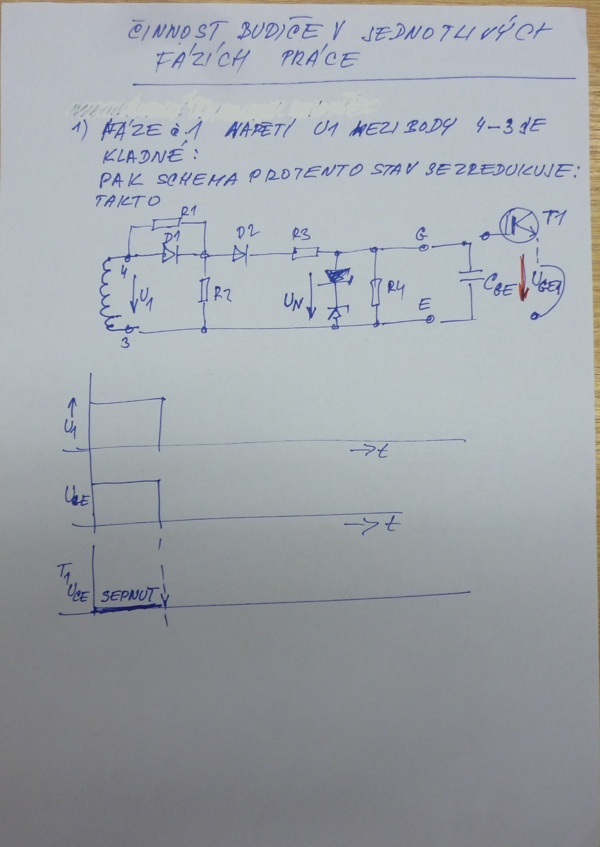 ČINNOST BUDIČE V JEDNOTLIVÝCH
FÁZÍCH PRÁCE
1) FÁZE č 1 NAPETÍ U1 MEZI BODY 4-3 JE
KLADNÉ:
PAK SCHEMA PROTENTO STAV SEZREDUKUJE:
TAKTO
R1
D1
D2
R3
G
T1
4
U1
R2
UN
R4
CGE
UGE1
E
3
U1
→ t
UGE
→ t
T1
UCE
SEPNUT